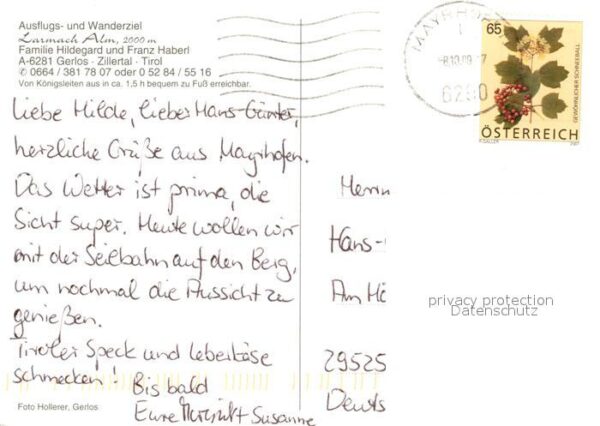 Ausflugs- und Wanderziel
Larmach Alm, 2000 m
Familie Hildegard und Franz Haberl
A-6281 Gerlos · Zillertal · Tirol
✆ 0664 / 381 78 07 oder 0 52 84 / 55 16
Von Königsleiten aus in ca. 1,5 h bequem zu Fuß erreichbar.
MAYRHOFEN
1
-8.10.09
6290
65
GEWÖHNLICHER SCHNEEBALL
ÖSTERREICH
2007
Liebe Hilde, lieber Hans-Günter,
herzliche Grüße aus Mayrhofen.
Das Wetter ist prima, die
Sicht super. Heute wollen wir
mit der Seilbahn auf den Berg,
um nochmal die Aussicht zu
genießen.
Tiroler Speck und Leberkäse
schmecken!
Bis bald
Eure Susanne
Herrn
Hans-
Am
29525
Deuts
privacy protection
Datenschutz
Foto Hollerer, Gerlos